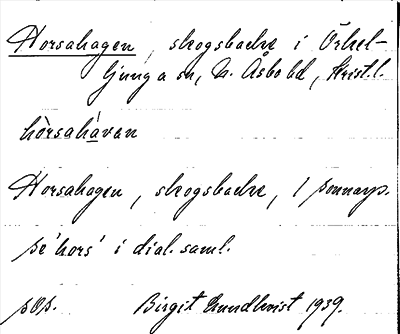 Horsahagen, skogsbacke i Örkel-
ljunga sn, N. Åsbo hd, Krist.l.
hòrsahàvan
Horsahagen, skogsbacke, 1 Sonnarp.
se 'hors' i dial.saml.
sOp. Birgit Lundkvist 1939.